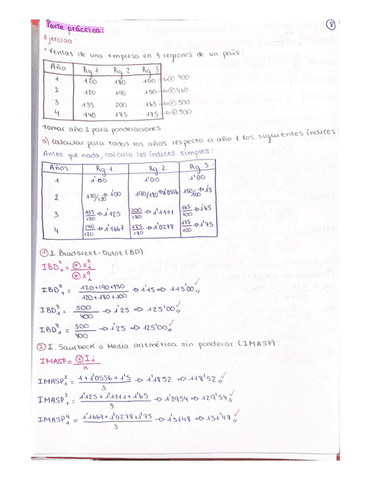 Parte práctica:
8
Ejercicio:
* Ventas de una empresa en 3 regiones de un país:
Año Rg 1 Rg 2 Rg 3
1 120 180 100 → ⊕ 400
2 120 190 150 → ⊕ 460
3 135 200 165 → ⊕ 500
4 140 185 175 → ⊕ 500
Tomar año 2 para ponderaciones.
a) Calcular para todos los años respecto el año 1 los siguientes índices:
Antes que nada, calculo los índices simples:
Años Rg 1 Rg 2 Rg 3
1 1'00 1'00 1'00
2 120/120 → 1'00 190/180 → 1'0556 150/100 → 1'5
3 135/120 → 1'125 200/180 → 1'1111 165/100 → 1'65
4 140/120 → 1'1667 185/180 → 1'0278 175/100 → 1'75
① I. Bradstreet-Dutot (BD)
IBD
IBD²₁ = 120+190+150 / 120+180+100 → 1'15 → 115'00 %
IBD³₁ = 500/400 → 1'25 → 125'00 %
IBD⁴₁ = 500/400 → 1'25 → 125'00 %
② I. Sauerbeck o Media aritmética sin ponderar (IMASP):
IMASP = ⊕ Ii / n
IMASP²₁ = 1+1'0556+1'5 / 3 → 1'1852 → 118'52 %
IMASP³₁ = 1'125+1'1111+1'65 / 3 → 1'2954 → 129'54 %
IMASP⁴₁ = 1'1667+1'0278+1'75 / 3 → 1'3148 → 131'48 %